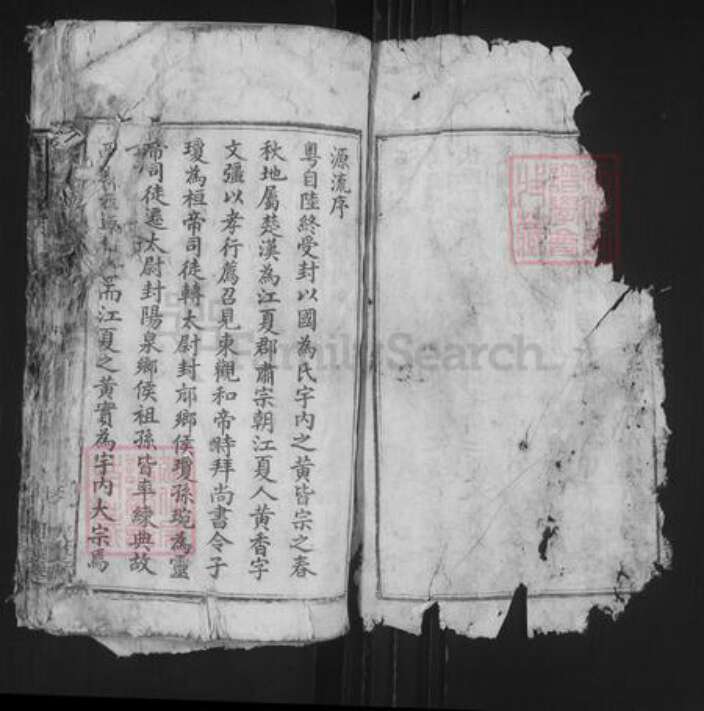 源流序
粵自陸終受封以國為氏宇內之黃皆宗之春
秋地屬楚漢為江夏郡肅宗朝江夏人黃香字
文彊以孝行薦召見東觀和帝時拜尚書令子
瓊為桓帝司徒轉太尉封邟鄉侯瓊孫琬為靈
帝司徒遷太尉封陽泉鄉侯祖孫皆率練典故
而江夏之黃實為宇內大宗焉
FamilySearch